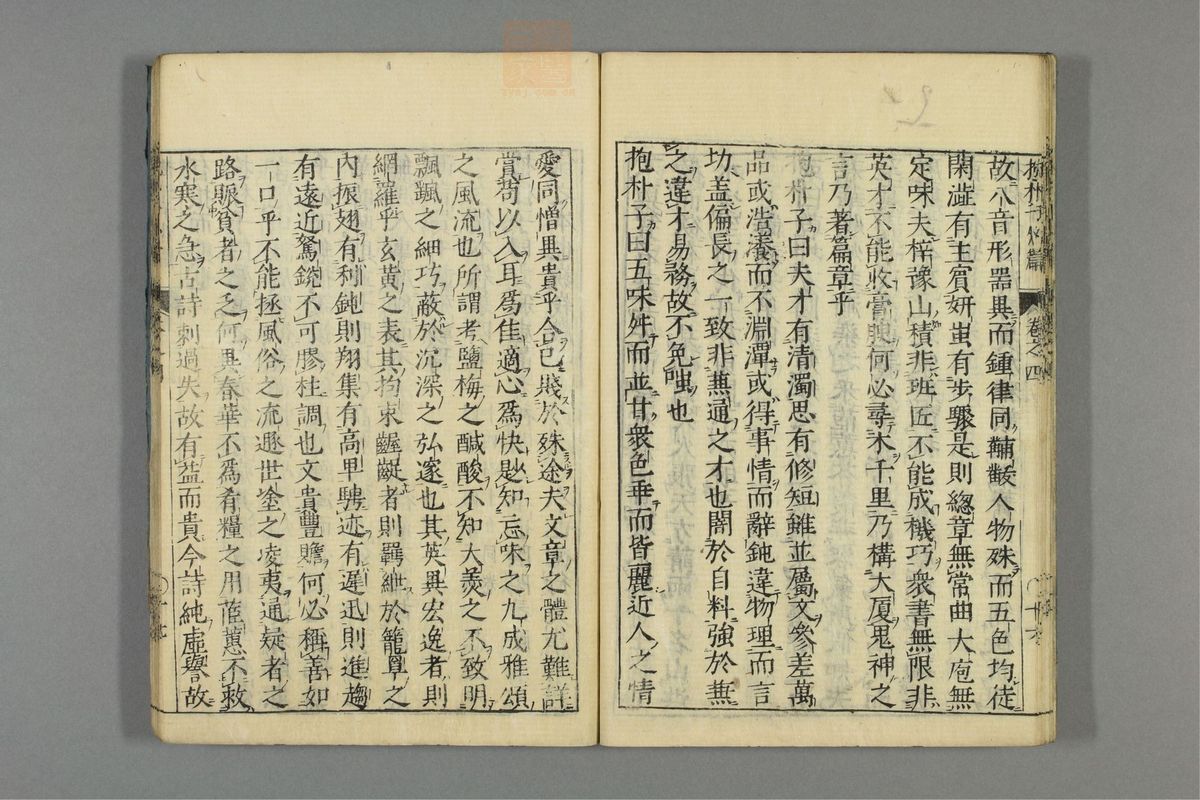 抱朴子外篇 卷之四
故八音形器異而鍾律同黼黻人物殊而五色均徒
閑澁有主賔妍蚩有步驟是則總章無常曲大庖無
定味夫梓豫山積非班匠不能成機巧衆書無限非
英才不能收膏腴何必尋木千里乃構大厦鬼神之
言乃著篇章乎
抱朴子曰夫才有清濁思有修短雖並屬文參差萬
品或浩瀁而不淵潭或得事情而辭鈍違物理而言
功盖偏長之一致非兼通之才也闇於自料強於兼
之違才易務故不免嗤也
抱朴子曰五味舛而並甘衆色乖而皆麗近人之情
愛同憎異貴乎合己賤於殊途夫文章之體尤難詳
賞苟以入耳爲佳適心爲快尟知忘味之九成雅頌
之風流也所謂考鹽梅之醎酸不知大羹之不致明
飄颻之細巧蔽於沉深之弘邃也其英異宏逸者則
網羅乎玄黃之表其拘束齷齪者則羈紲於籠罩之
內振翅有利鈍則翔集有高卑騁迹有遲迅則進趨
有遠近駑銳不可膠柱調也文貴豐贍何必稱善如
一口乎不能拯風俗之流遯世塗之凌夷通疑者之
路賑貧者之乏何異春華不爲肴糧之用茝蕙不救
氷寒之急古詩刺過失故有益而貴今詩純虛譽故